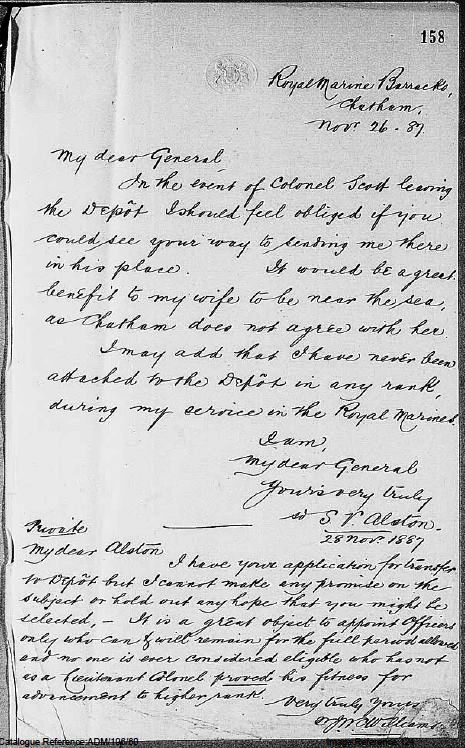 158
Royal Marine Barracks,
Chatham,
Novr 26 - 87
My dear General,
In the event of Colonel Scott leaving
the Depôt I should feel obliged if you
could see your way to sending me there
in his place. It would be a great
benefit to my wife to be near the sea,
as Chatham does not agree with her.
I may add that I have never been
attached to the Depôt in any rank,
during my service in the Royal Marines.
I am,
My dear General
Yours very truly
sd S. V. Alston.
28 Novr. 1887
Private
My dear Alston
I have your application for transfer
to Depôt but I cannot make any promise on the
subject or hold out any hope that you might be
selected, - It is a great object to appoint Officers
only who can & will remain for the full period allowed
and no one is ever considered eligible who has not
as a Lieutenant Colonel proved his fitness for
advancement to higher rank.
Very truly Yours
Williams
Catalogue Reference:ADM/196/60